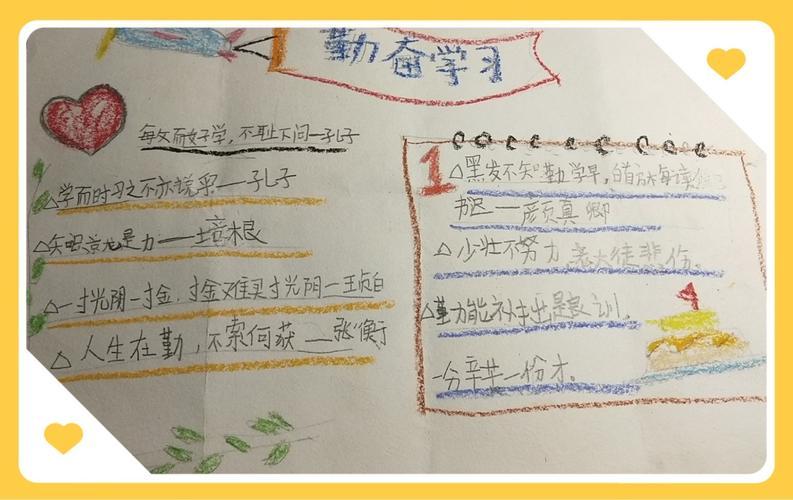 勤奋学习
每文而好学，不耻下问—孔子
△学而时习之不亦说乎——孔子
△知识就是力——培根
△一寸光阴一寸金，寸金难买寸光阴—王贞白
△人生在勤，不索何获——张衡
1
△黑发不知勤学早，白首方悔读
书迟——颜真卿
△少壮不努力 老大徒悲伤。
△勤能补拙是良训，
一分辛苦一份才。